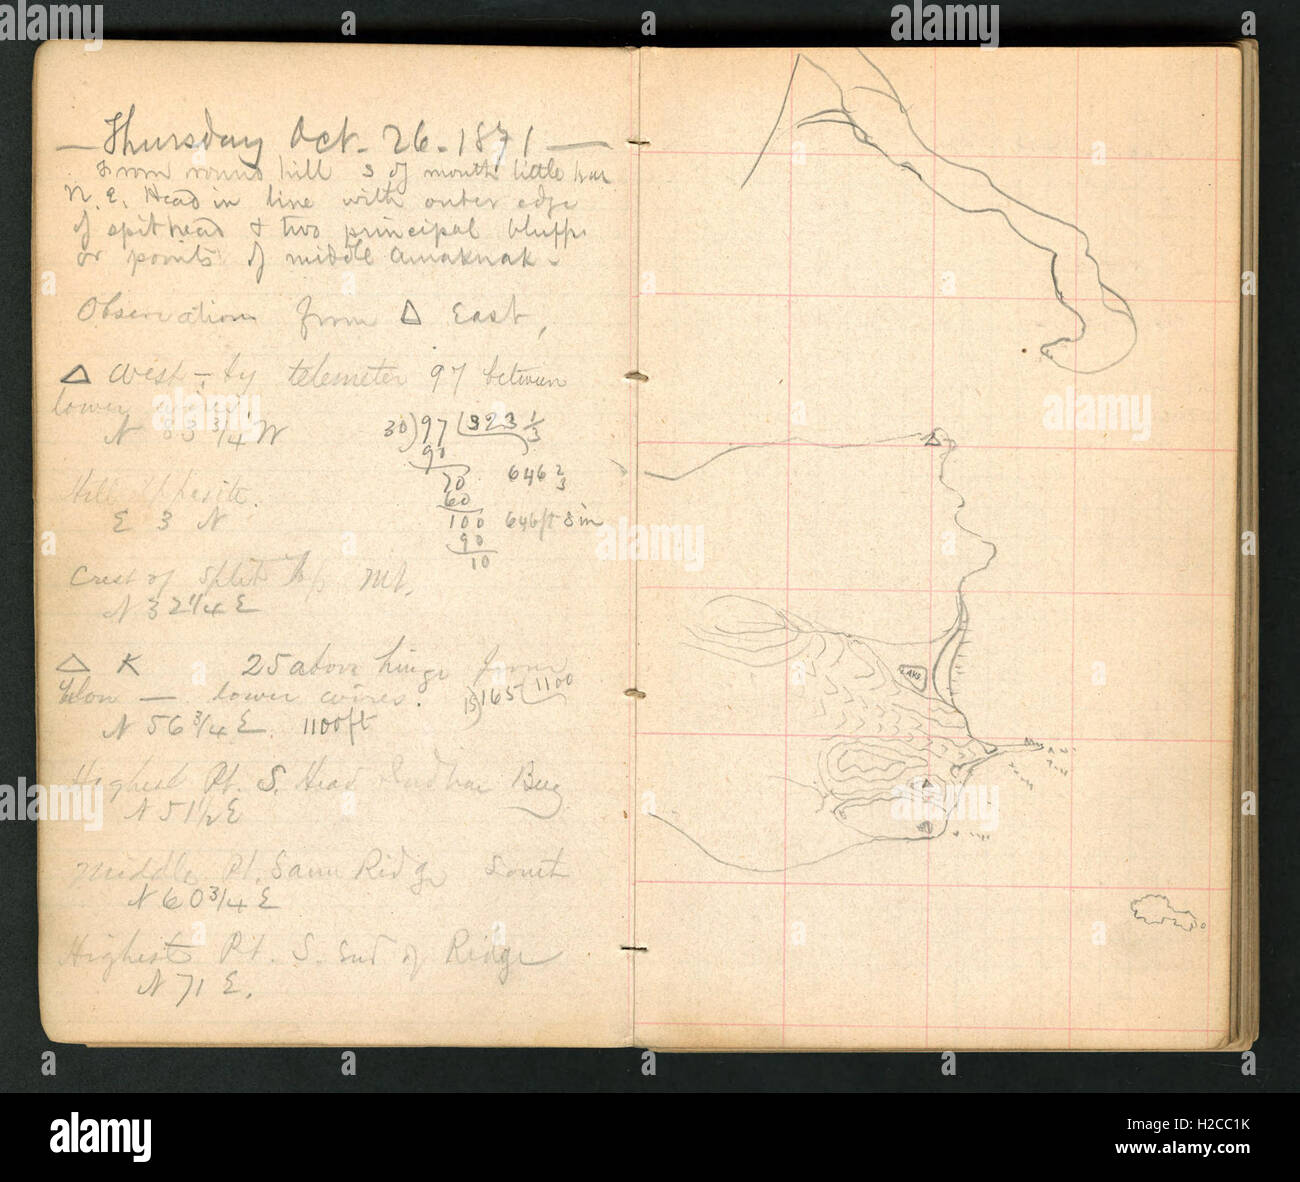 Thursday Oct. 26. 1871
From round hill S of mouth little
N. E. Head in line with outer edge
of spithead & two principal bluffs
or points of middle Amaknak.
Observations from △ East,
△ West - by telemeter 97 between
lower wires.
N 83 3/4 W
30)97(323 1/3
90
70
646 2/3
60
100
646 ft 8 in
90
10
Hill opposite.
E 3 N
Crest of split top Mt.
N 32 1/4 E
△ K 25 above hinge from
lower wires.
15)165(1100
N 56 3/4 E. 1100 ft
Highest Pt. S. Head
N 51 1/2 E
Middle Pt. Same Ridge South
N 60 3/4 E
Highest Pt. S. End of Ridge
N 71 E.
LAKE
a
alamy
H2CC1K
www.alamy.com